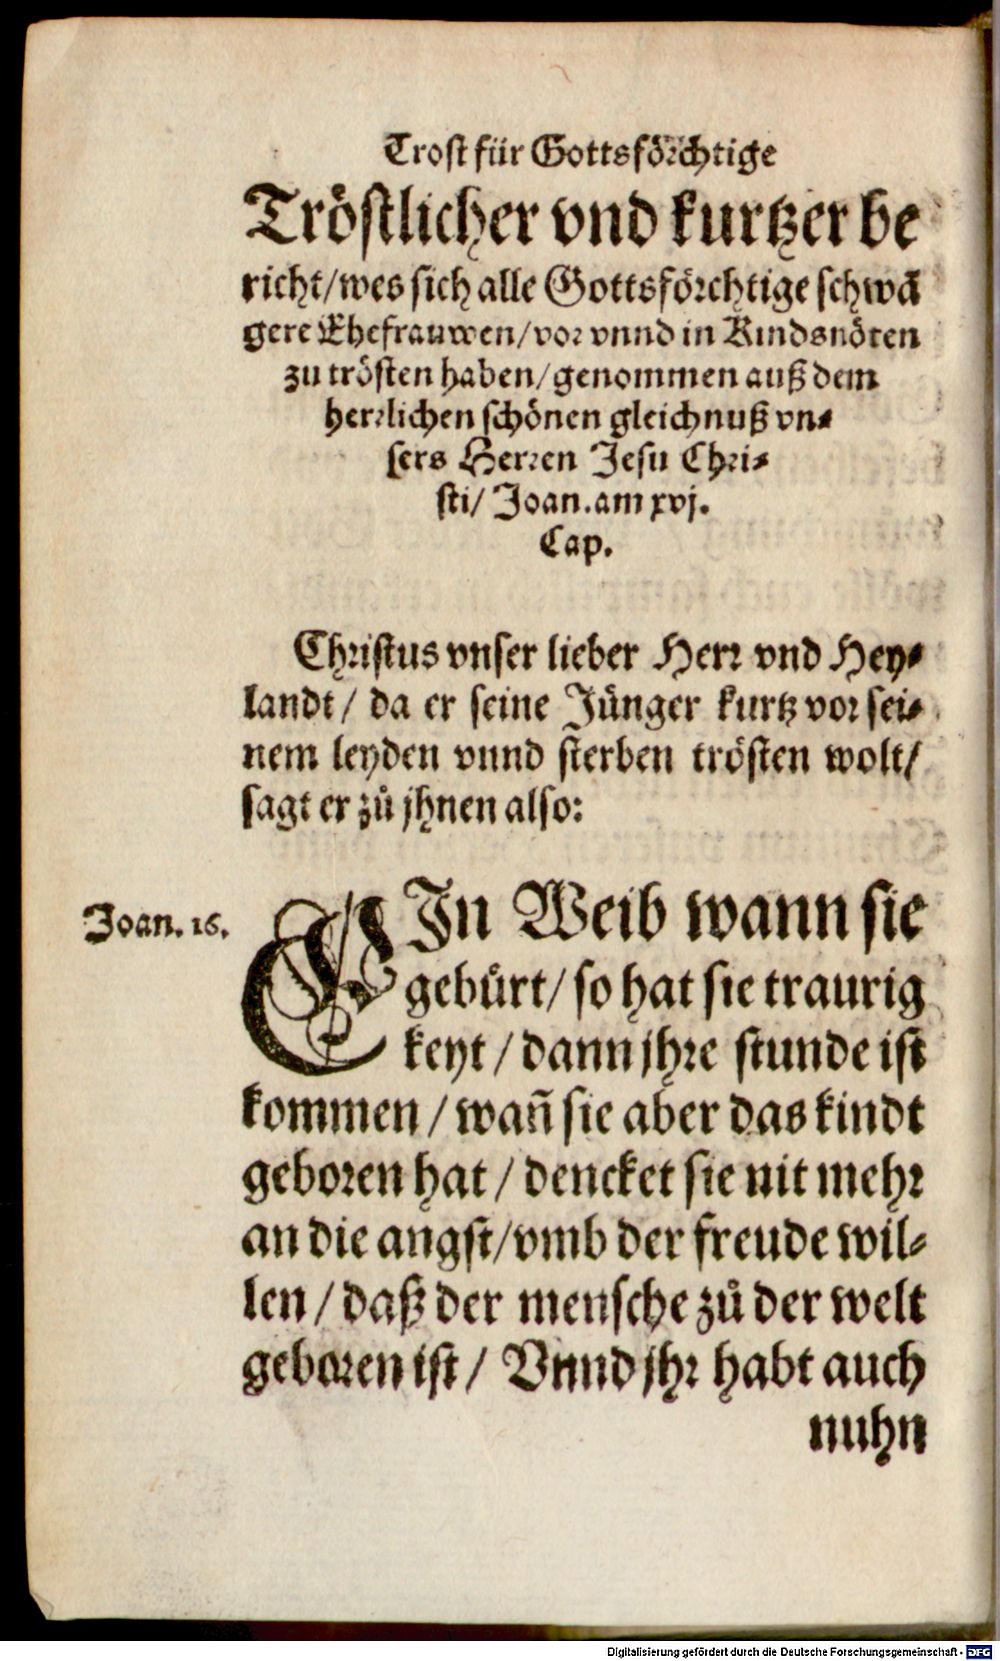 Trost für Gottsförchtige
Tröstlicher vnd kurtzer be
richt/wes sich alle Gottsförchtige schwā
gere Ehefrauwen/vor vnnd in Kindsnöten
zu trösten haben/genommen auß dem
herrlichen schönen gleichnuß vn-
sers Herren Jesu Chri-
sti/ Joan.am xvj.
Cap.
Christus vnser lieber Herr vnd Hey-
landt/ da er seine Jünger kurtz vor sei-
nem leyden vnnd sterben trösten wolt/
sagt er zů jhnen also:
Joan. 16.
EIn Weib wann sie
gebürt/ so hat sie traurig
keyt / dann jhre stunde ist
kommen / wañ sie aber das kindt
geboren hat / dencket sie nit mehr
an die angst/vmb der freude wil-
len / daß der mensche zů der welt
geboren ist / Vnnd jhr habt auch
nuhn
Digitalisierung gefördert durch die Deutsche Forschungsgemeinschaft - DFG